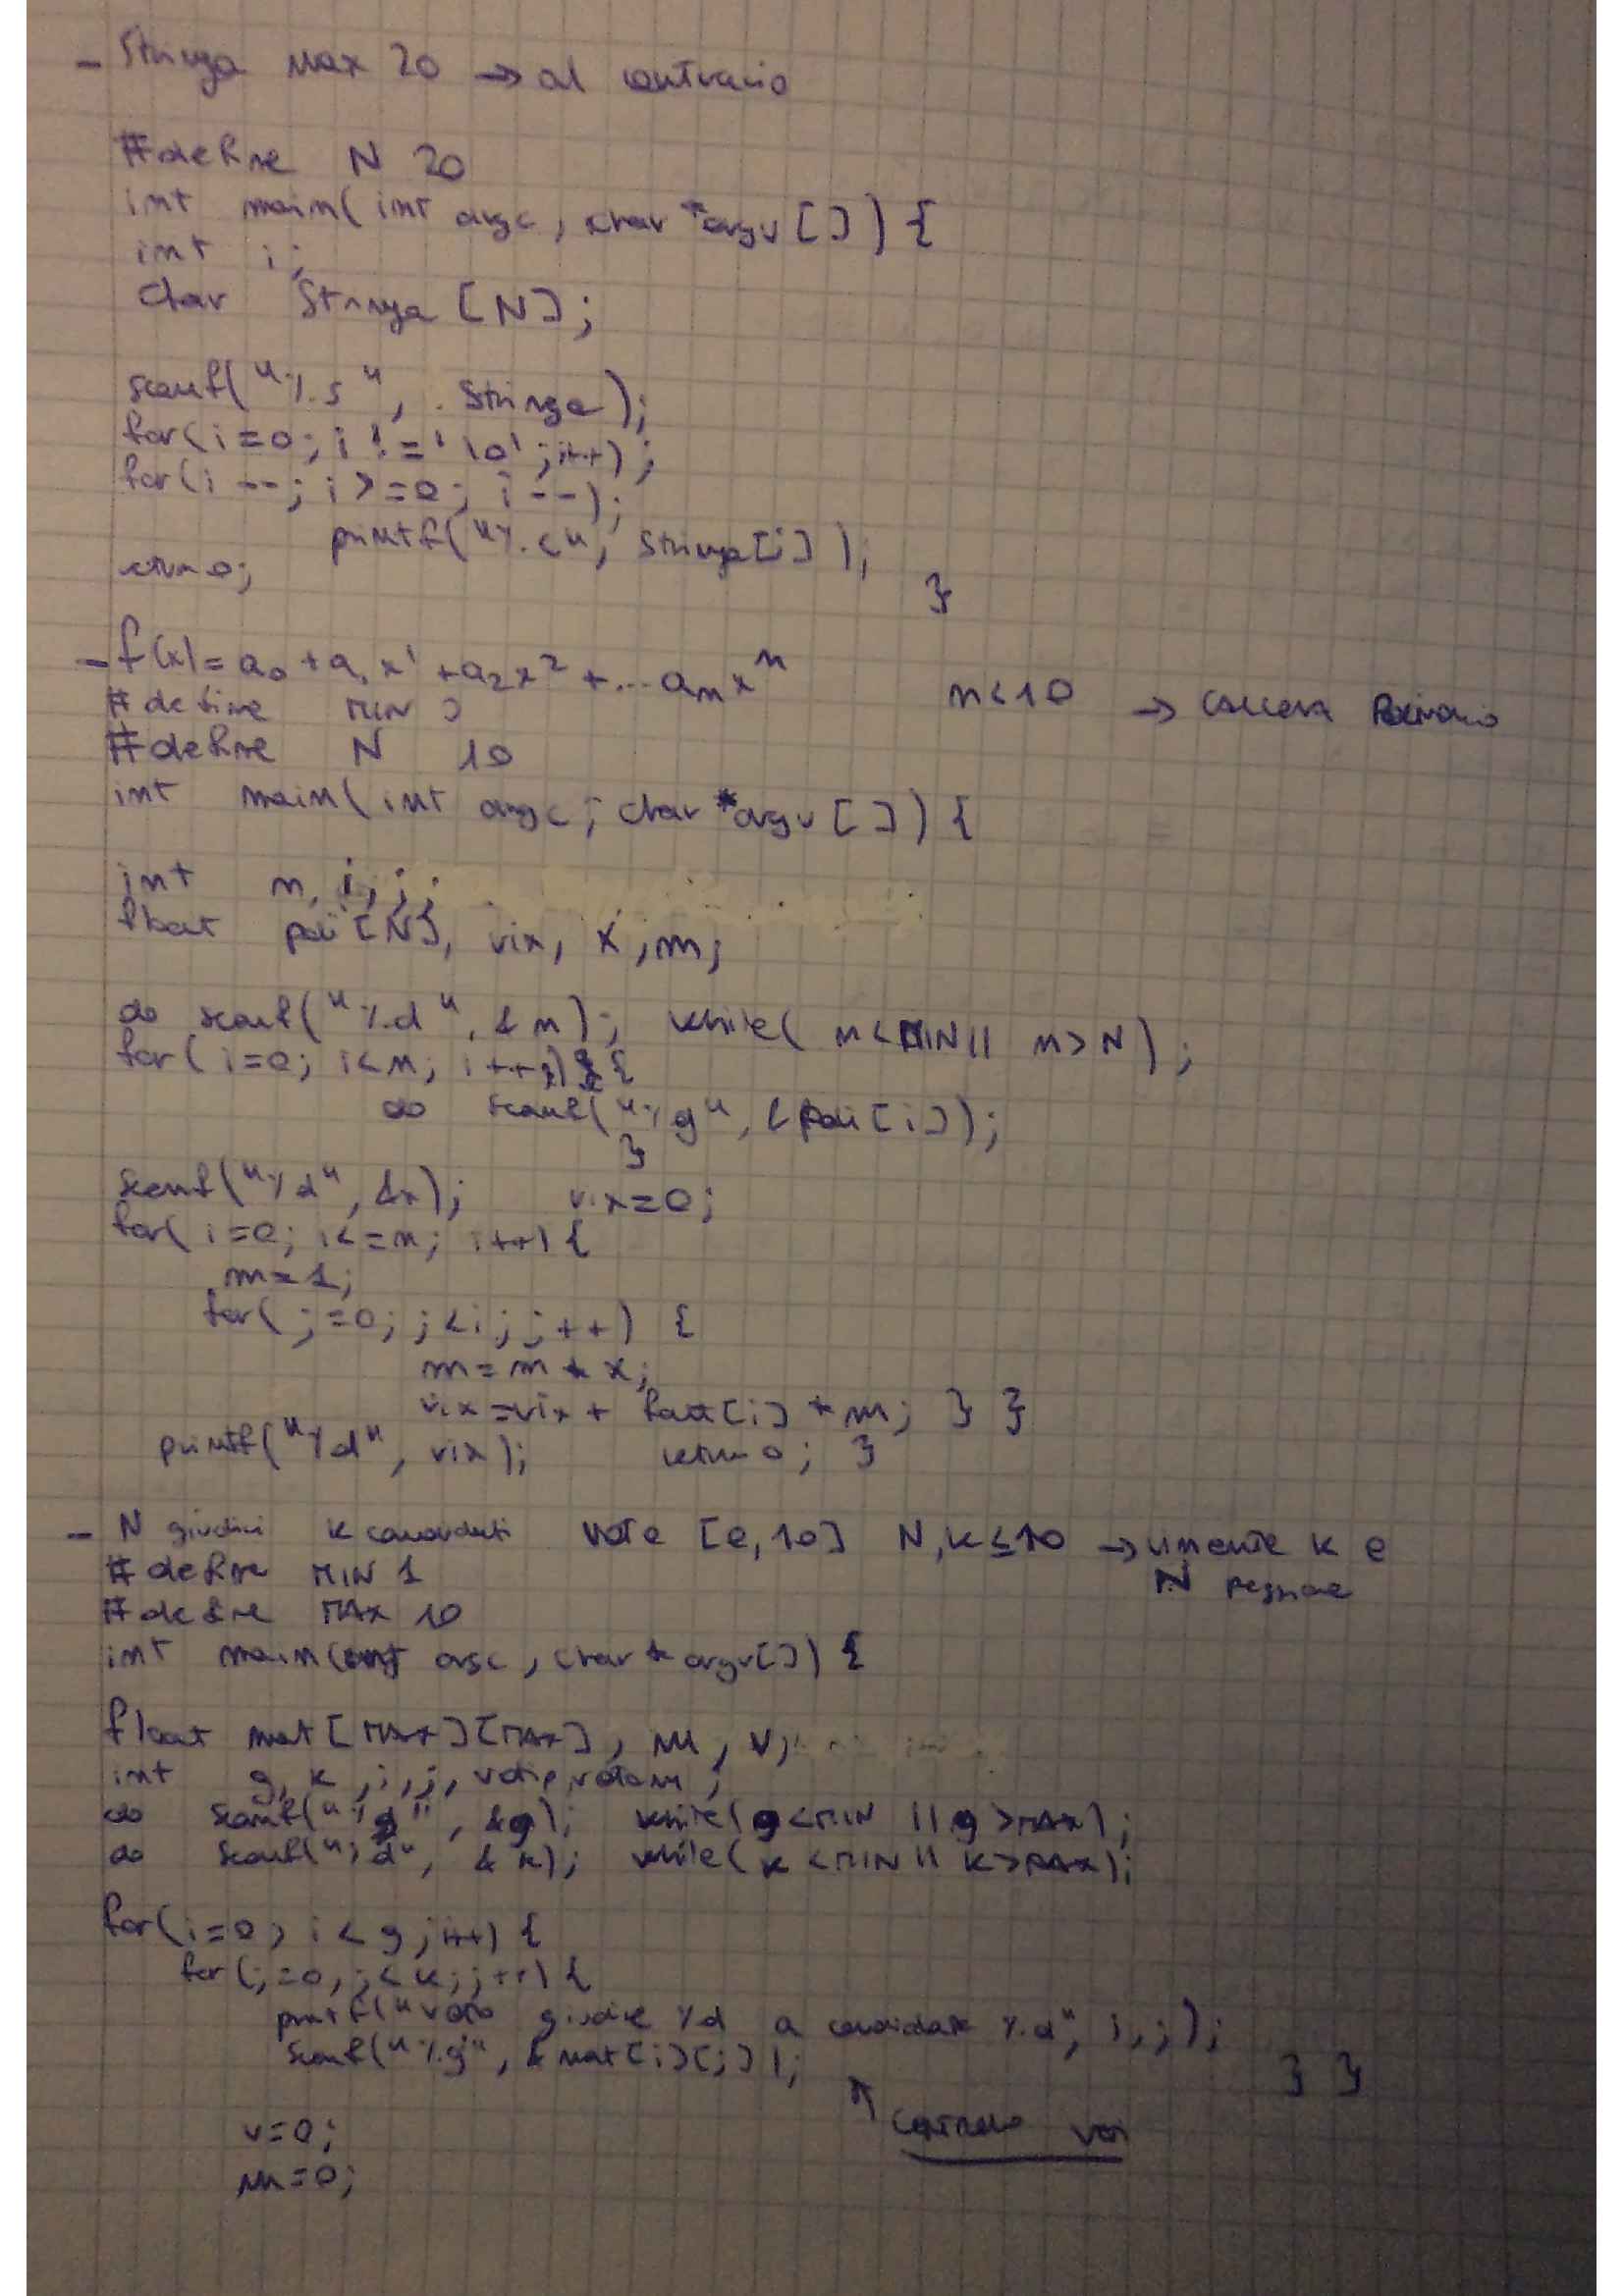 - Stringa max 20 → al contrario
#define N 20
int main(int argc, char *argv[]) {
int i;
char Stringa [N];
scanf("%s", Stringa);
for(i=0; i != '\0'; i++);
for(i--; i>=0; i--);
printf("%c", Stringa[i]);
return 0; }
- f(x) = a0 + a1 x^1 + a2 x^2 + ... an x^n n<10 → calcola Polinomio
#define MIN 0
#define N 10
int main(int argc; char *argv[]) {
int n, i, j;
float poli[N], vix, x, m;
do scanf("%d", &n); while( n<MIN || n>N);
for(i=0; i<n; i++) {
do scanf("%g", &poli[i]);
}
scanf("%d", &x); vix=0;
for(i=0; i<=n; i++) {
m=1;
for(j=0; j<i; j++) {
m=m*x;
vix=vix+ fatt[i] * m; } }
printf("%d", vix); return 0; }
- N giudici K candidati vote [0,10] N,K≤10 → vincente K e
N peggiore
#define MIN 1
#define MAX 10
int main(int argc, char *argv[]) {
float mat[MAX][MAX], m, v;
int g, k, i, j,
do scanf("%g", &g); while(g<MIN || g>MAX);
do scanf("%d", &k); while(k<MIN || k>MAX);
for(i=0; i<g; i++) {
for(j=0, j<k; j++) {
printf("voto giudice %d a candidato %d", i, j);
scanf("%g", &mat[i][j]); } }
↑ controllo voti
v=0;
m=0;